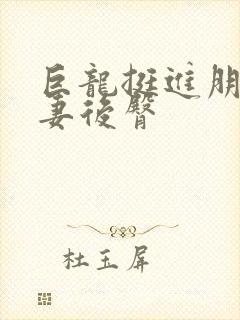 巨龍挺進朋
妻後臀
杜玉屏